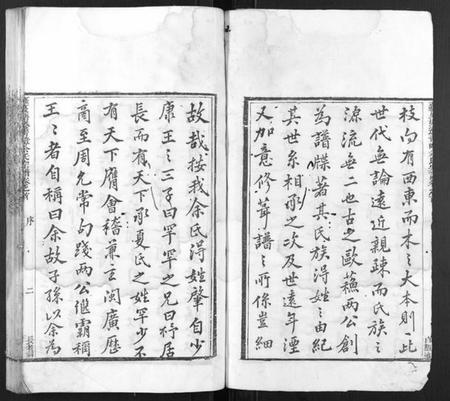 枝向有西東而木之大本則一此
世代無論遠近親疎而民族之
源流無二也古之歐蘇兩公創
為譜牒著其氏族淂姓之由紀
其世系相承之次及世遠年湮
又加意修葺譜之所係豈細
故哉按我余氏淂姓肇自少
康王之三子曰罕罕之兄曰杼居
長而有天下承夏氏之姓罕少不
有天下膺會稽兼主閩廣歷
商至周允常勾踐兩公継霸稱
王王者自稱曰余故子孫以余為
序
二